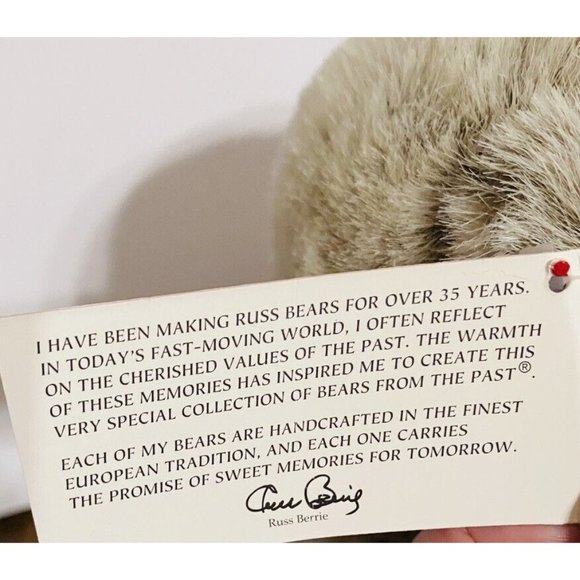 I HAVE BEEN MAKING RUSS BEARS FOR OVER 35 YEARS.
IN TODAY'S FAST-MOVING WORLD, I OFTEN REFLECT
ON THE CHERISHED VALUES OF THE PAST. THE WARMTH
OF THESE MEMORIES HAS INSPIRED ME TO CREATE THIS
VERY SPECIAL COLLECTION OF BEARS FROM THE PAST®.
EACH OF MY BEARS ARE HANDCRAFTED IN THE FINEST
EUROPEAN TRADITION, AND EACH ONE CARRIES
THE PROMISE OF SWEET MEMORIES FOR TOMORROW.
Russ Berrie
Russ Berrie